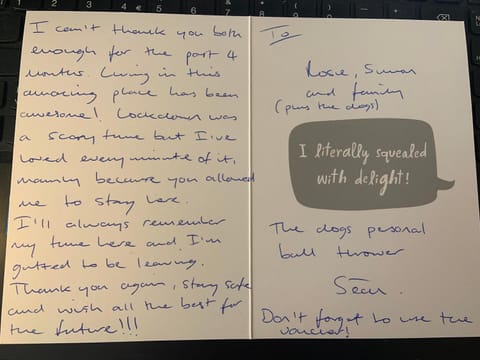 I can't thank you both
enough for the part 4
months. Living in this
amazing place has been
awesome! Lockdown was
a scary time but I've
loved every minute of it,
mainly because you allowed
me to stay here.
I'll always remember
my time here and I'm
gutted to be leaving.
Thank you again, stay safe
and wish all the best for
the future!!!
To
Rosie, Simon
and family
(plus the dogs)
I literally squealed
with delight!
The dogs personal
ball thrower
Séan.
Don't forget to use the
voucher!